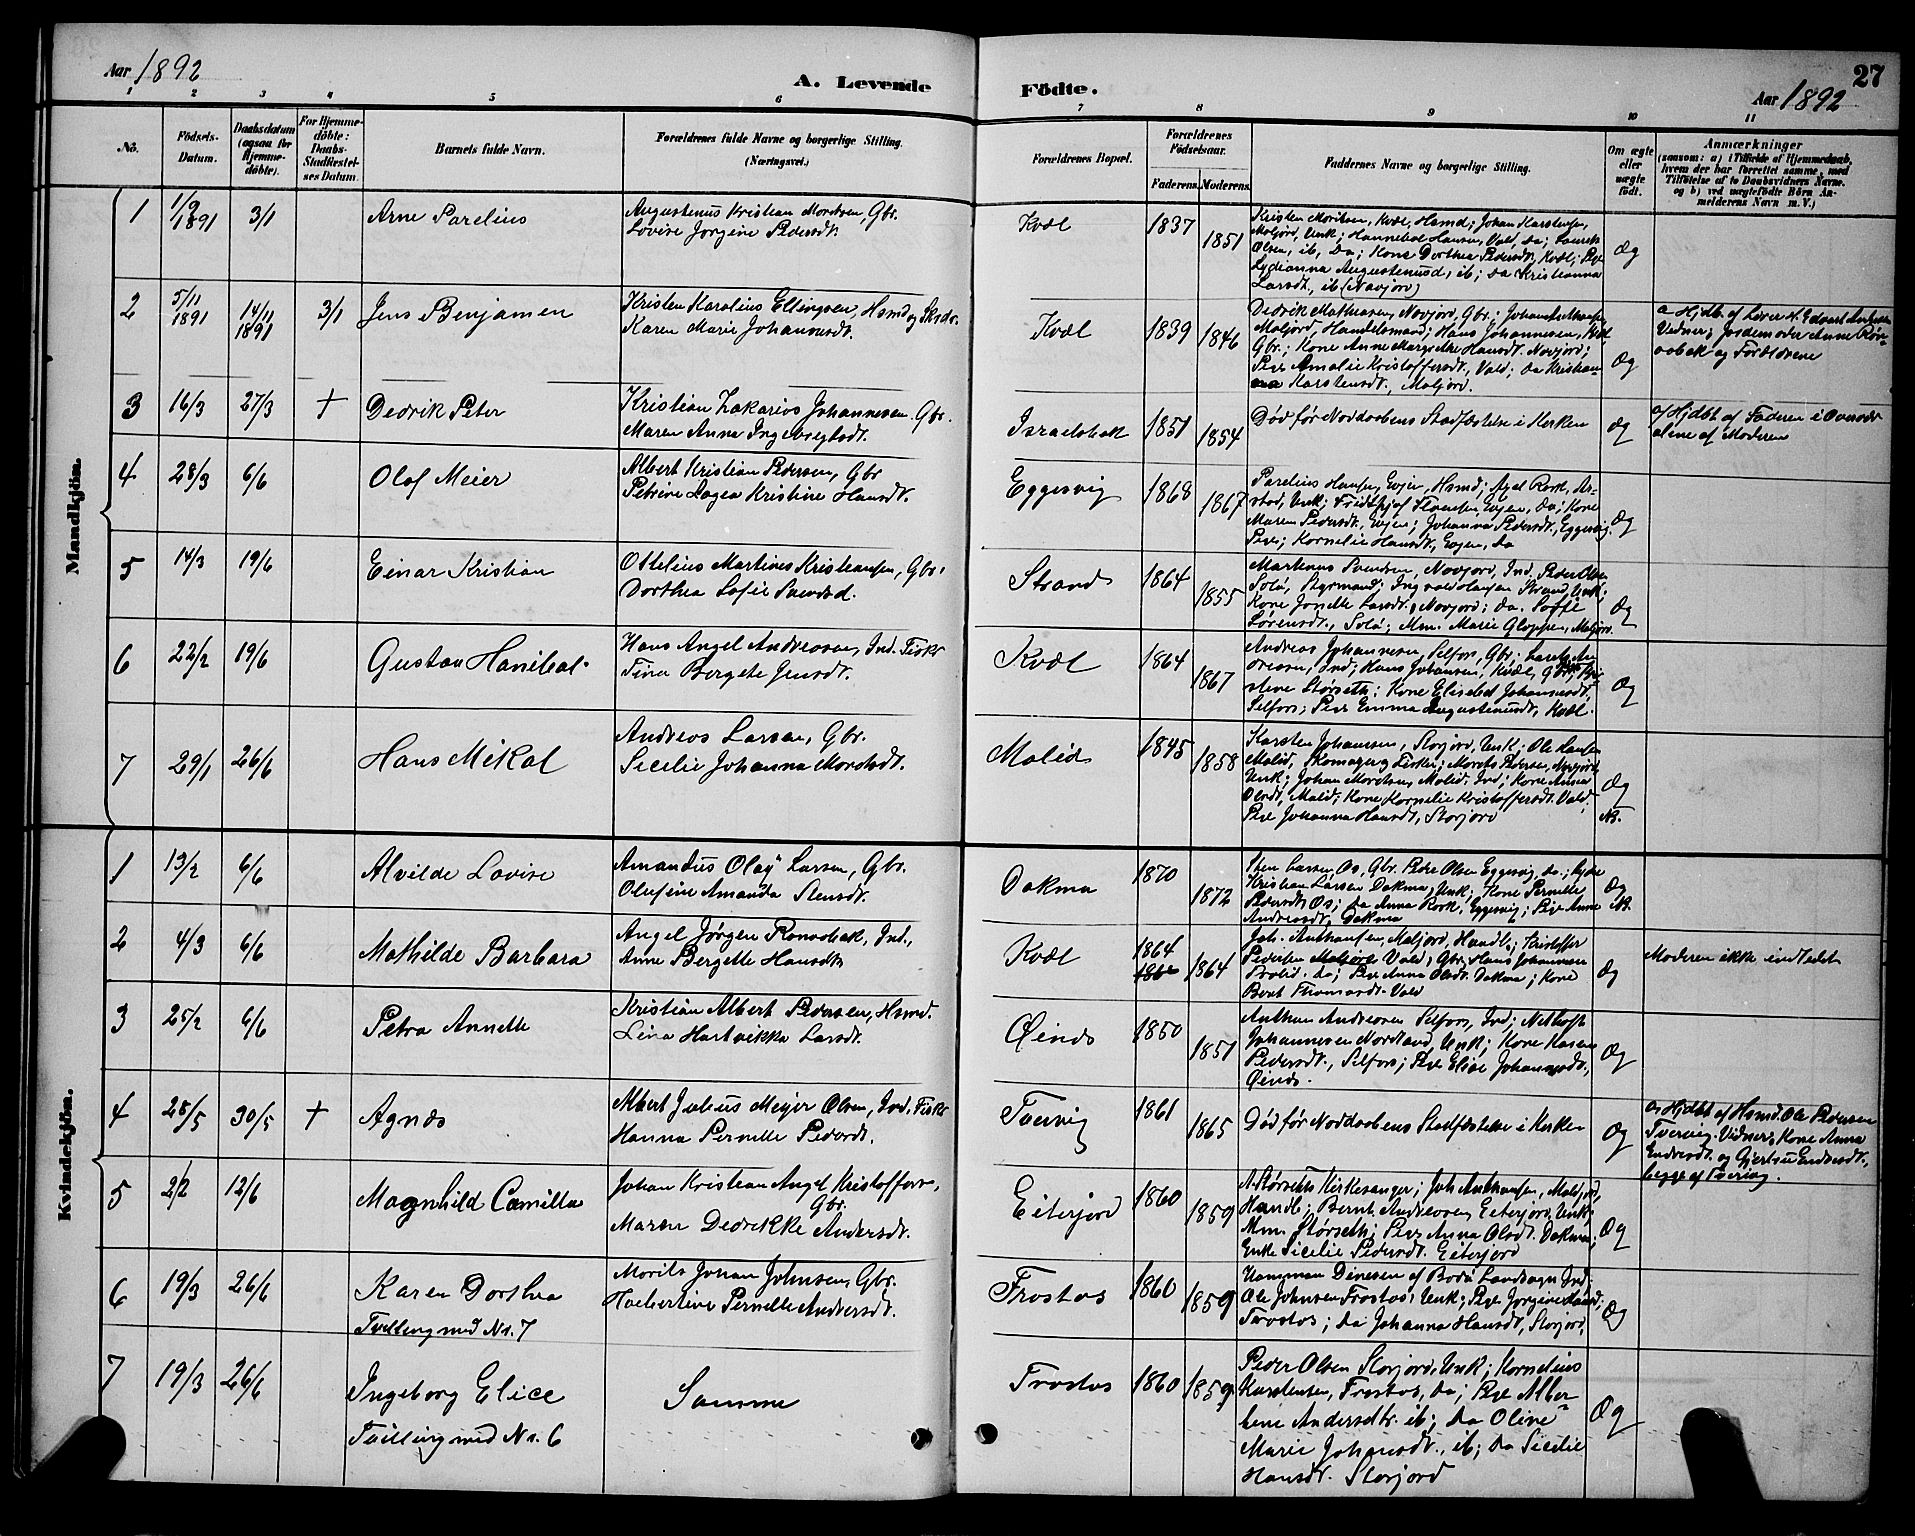 Aar 1892
A. Levende Födte.
Aar 1892
27
1 2 3 4 5 6 7 8 9 10 11
No.
Födsels-
Datum.
Daabsdatum
(ogsaa for
Hjemme-
döbte).
For Hjemme-
döbte:
Daabs-
Stadfæstel-
ses Datum.
Barnets fulde Navn.
Forældrenes fulde Navne og borgerlige Stilling.
(Næringsvei.)
Forældrenes Bopæl.
Forældrenes
Födselsaar.
Faderens. Moderens.
Faddernes Navne og borgerlige Stilling.
Om ægte
eller
uægte
födt.
Anmærkninger
(saasom: a) i Tilfælde af Hjemmedaab,
hvem der har forrettet samme, med
Tilföielse af to Daabsvidners Navne,
og b) ved uægtefödte Börn An-
melderens Navn m. V.)
Mandkjön.
1 1/9 1891 3/1 Arne Parelius
Augustenus Kristian Mordsen, Gbr.
Lovise Jorgine Pedersdt.
Kvæl 1837 1851
Kristen Moritsen, Kvæl, Hsmd; Johan Karstensen,
Maljord, Unk; Hannibal Hansen, Vald, da; Laurits
Olsen, ib, da; Kone Dorthea Pedersdt, Kvæl; Pige
Lydianna Augustenusd, ib; da Kristianna
Larsdt, ib (Novjord)
Æg
2 5/11 1891 14/11 1891 3/1 Jens Benjamen
Kristen Karolius Ellingsen, Hsmd og Skrdr.
Karen Marie Johannesdt.
Kvæl 1839 1846
Dedrik Mathiasen, Novjord, Gbr.; Johan Anthonsen,
Maljord, Handelsmand; Hans Johannesen, Kvæl,
Gbr.; Kone Anne Margrethe Hansdt. Novjord;
Pige Amalie Kristoffersdt., Vald; da Kristian-
na Karstensdt., Maljord.
Æg
a Hjdbt. af Lærer H. Edvart Andersen
Vidner; Jordemoder Anne Røn-
aabak og Forældrene
3 16/3 27/3 † Dedrik Peter
Kristian Zakarias Johannesen, Gbr.
Maren Anna Ingebrigtsdt.
Israelsbak 1851 1854
Død før Noddaabens Stadfæstelse i Kirken
Æg
a/ Hjdbt. af Faderen i Overvær
alene af Moderen
4 28/3 6/6 Olaf Meier
Albert Kristian Pedersen, Gbr
Petrine Lagea Kristine Hansdt.
Eggesvig 1868 1867
Parelius Hansen, Evjen, Hsmd; Axel Rørk, Ar-
stad, Unk; Fridthjof Stensen, Evjen, da; Kone
Maren Pedersdt., Evjen; Johanna Pedersdt., Eggesvig,
Pige; Kornelie Hansdt, Evjen, da
Æg
5 14/3 19/6 Einar Kristian
Ottelius Martines Kristiansen, Gbr.
Dorthea Sofie Svendsd.
Strand 1864 1855
Martenus Svendsen, Novjord, Ind, Peder Olsen
Solø, Styrmand; Ingvald Olaisen Strand, Unk;
Kone Jonette Larsdt., Novjord; da. Soffie
Sørensdt., Solø; Mm. Marie Gloppen, Maljord
Æg
6 22/2 19/6 Gustav Hanibal
Hans Angel Andreasen, Ind. Fisker
Tina Bergete Jensdt.
Kvæl 1864 1867
Andreas Johannesen, Selfors, Gbr; Laurits An-
dreasen, Ind; Hans Johansen, Kvæl, Gbr;
Størseth; Kone Elisabet Johannesdt,
Selfors; Pige Emma Augustenusdt, Kvæl.
Æg
7 29/1 26/6 Hans Mikal
Andreas Larsen, Gbr.
Sicelie Johanna Mordsdt.
Molid 1845 1858
Karsten Johansen, Storjord, Unk; Ole Larsen
Molid, Skomager og Fisker; Morits Pedersen, Novjord,
Unk; Johan Mordsen, Molid, Ind; Kone Anna
Olsdt, Molid; Kone Kornelie Kristoffersdt. Vald;
Pige Johanna Hansdt, Storjord
Æg
NB.
Kvindekjön.
1 13/2 6/6 Alvilde Lovise
Amandus Olay Larsen, Gbr.
Olufine Amanda Stensdt.
Dokmo 1870 1872
Sten Larsen, Os, Gbr. Peder Olsen Eggesvig, da;
Kristian Larsen Dokmo, Unk; Kone Pernille
Pedersdt. Os; da Anna Rørk, Eggesvig; Pige Anne
Andreasdt, Dokmo
Æg
NB.
2 4/3 6/6 Mathilde Barbara
Angel Jörgen Ronvobak, Ind.,
Anne Bergette Hansdt
Kvæl 1864 1864
Joh. Anthonsen, Maljord, Handl.; Kristoffer
Pedersen Vald, Gbr; Hans Johannesen
Molid, da; Pige Anna Olsdt. Dokmo; Kone
Berit Thomasdt. Vald
Æg
Moderen ikke indledet
3 25/2 6/6 Petra Annette
Kristian Albert Pedersen, Hsmd.
Lina Hartvikka Larsdt.
Øinds 1850 1851
Anthon Andreasen Selfors, Ind;
Johannesen Nordland, Unk; Kone Karen
Pedersdt., Selfors; Pige Elise Johannesdt.,
Øinds.
Æg
4 28/5 30/5 † Agnæs
Albert Julius Meyer Olsen, Ind. Fisker
Hanna Pernille Pedersdt.
Tvervig 1861 1865
Død før Noddaabens Stadfæstelse i Kirken
Æg
a. Hjdbt af Hsmd. Ole Pedersen
Tvervig. Vidner; Kone Anna
Endresdt. og Gjertsu Endresdt.,
begge af Tvervig.
5 2/2 12/6 Magnhild Camilla
Johan Kristian Angel Kristoffers.,
Gbr.
Maren Dedrikke Andersdt.
Eiterjord 1860 1859
A. Størseth Kirkesanger; Joh Anthonsen, Maljord,
Handl; Bernt Andreasen, Eiterjord, Unk;
Mm. Størseth; Pige Anna Olsdt. Dokmo;
Enke Sicelie Pedersdt. Eiterjord
Æg
6 19/3 26/6 Karen Dorthea
Tvilling med Nr. 7
Morits Johan Johnsen, Gbr.
Halbertine Pernille Andersdt.
Frostos 1860 1859
Hamman Dinesen af Bodø Landsogn Ind;
Ole Johnsen Frostos, Unk; Pige Jorgine
Frostos; da Johanna Hansdt, Storjord,
Æg
7 19/3 26/6 Ingeborg Elice
Tvilling med Nr. 6
Samme
Frostos 1860 1859
Peder Olsen Storjord, Unk; Kornelius
Karstensen, Frostos, da; Pige Alber-
tine Andersdtr. ib; da Oline
Marie Johansdt., ib; da Sicelie
Hansdt. Storjord
Æg